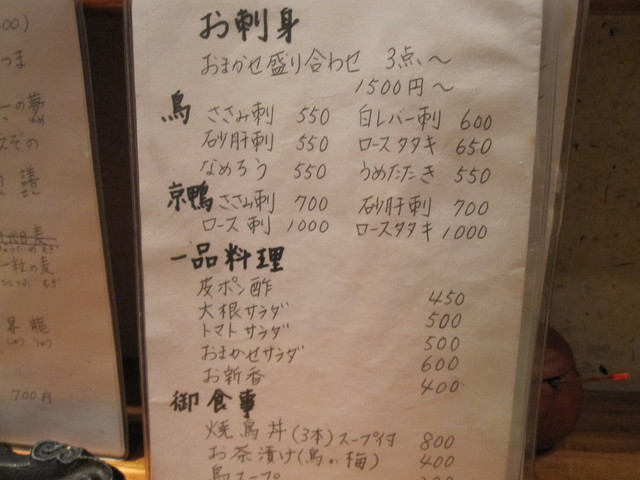 お刺身
おまかせ盛り合わせ 3点〜
1500円〜
鳥 ささみ刺 550 白レバー刺 600
砂肝刺 550 ロースタタキ 650
なめろう 550 うめたたき 550
京鴨 ささみ刺 700 砂肝刺 700
ロース刺 1000 ロースタタキ 1000
一品料理
皮ポン酢 450
大根サラダ 500
トマトサラダ 500
おまかせサラダ 600
お新香 400
御食事
焼鳥丼(3本)スープ付 800
お茶漬け(鳥or梅) 400
鳥スープ
つま
一の夢
ぞの
一粒の麦
昇龍
700円